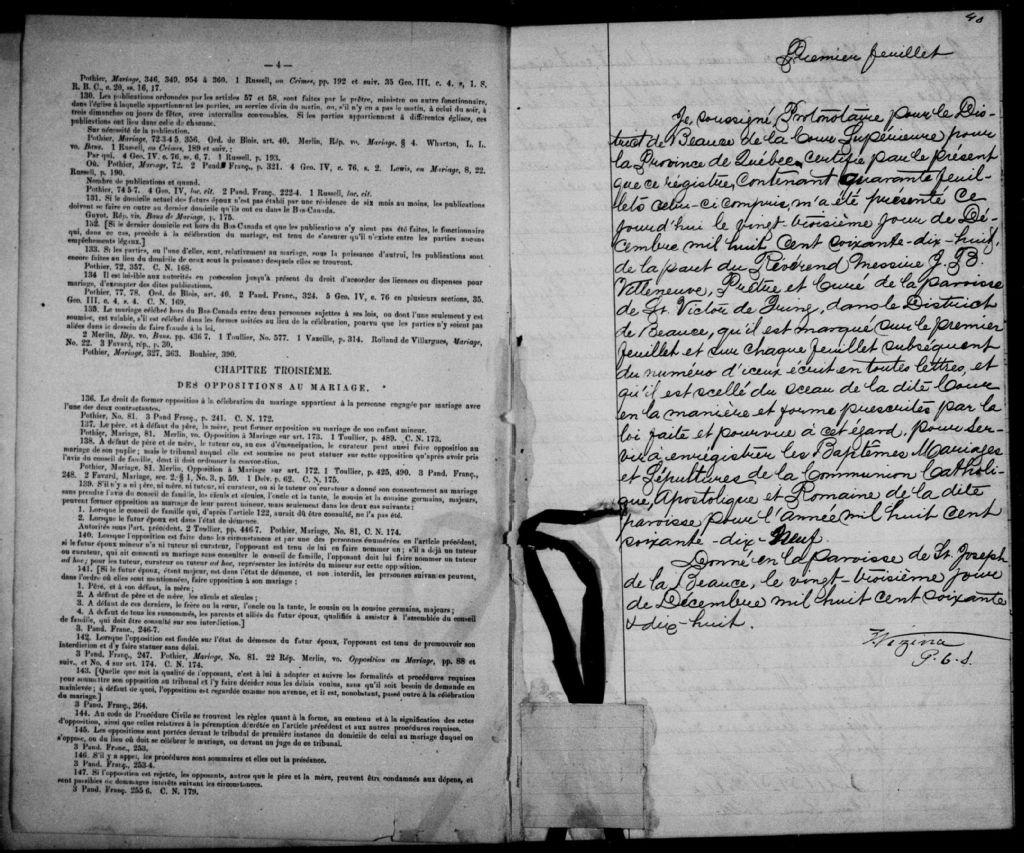 — 4 —
Pothier, Mariage, 346, 349, 954 à 360. 1 Russell, on Crimes, pp. 192 et suiv. 35 Geo. III, c. 4, s, 1. S.
R. B. C., c. 20, ss. 16, 17.
130. Les publications ordonnées par les articles 57 et 58, sont faites par le prêtre, ministre ou autre fonctionnaire,
dans l'église à laquelle appartiennent les parties, au service divin du matin, ou, s'il n'y en a pas le matin, à celui du soir, à
trois dimanches ou jours de fêtes, avec intervalles convenables. Si les parties appartiennent à différentes églises, ces
publications ont lieu dans celle de chacune.
Sur nécessité de la publication.
Pothier, Mariage, 72-3-4 5, 356. Ord. de Blois, art. 40. Merlin, Rép. vo. Mariage, § 4. Wharton, L. L.
vo. Bans. 1 Russell, on Crimes, 189 et suiv. :
Par qui. 4 Geo. IV, c. 76, ss. 6, 7. 1 Russell, p. 193.
Où. Pothier, Mariage, 72. 2 Pand. Franç., p. 321. 4 Geo. IV, c. 76, s. 2. Lewis, on Mariage, 8, 22.
Russell, p. 190.
Nombre de publications et quand.
Pothier, 74 5-7. 4 Geo. IV, loc. cit. 2 Pand. Franç., 222-4. 1 Russell, loc. cit.
131. Si le domicile actuel des futurs époux n'est pas établi par une résidence de six mois au moins, les publications
doivent se faire en outre au dernier domicile qu'ils ont eu dans le Bas-Canada.
Guyot. Rép. vis. Bans de Mariage, p. 175.
132. [Si le dernier domicile est hors du Bas-Canada et que les publications n'y aient pas été faites, le fonctionnaire
qui, dans ce cas, procède à la célébration du mariage, est tenu de s'assurer qu'il n'existe entre les parties aucuns
empêchements légaux.]
133. Si les parties, ou l'une d'elles, sont, relativement au mariage, sous la puissance d'autrui, les publications sont
encore faites au lieu du domicile de ceux sous la puissance desquels elles se trouvent.
Pothier, 72, 357. C. N. 168.
134 Il est loisible aux autorités en possession jusqu'à présent du droit d'accorder des licences ou dispenses pour
mariage, d'exempter des dites publications.
Pothier, 77, 78. Ord. de Blois, art. 40. 2 Pand. Franc., 324. 5 Geo. IV, c. 76 en plusieurs sections, 35.
Geo. III, c. 4, s. 4. C. N. 169.
135. Le mariage célébré hors du Bas-Canada entre deux personnes sujettes à ses lois, ou dont l'une seulement y est
soumise, est valable, s'il est célébré dans les formes usitées au lieu de la célébration, pourvu que les parties n'y soient pas
allées dans le dessein de faire fraude à la loi.
2 Merlin, Rép. vo. Bans, pp. 436 7. 1 Toullier, No. 577. 1 Vazeille, p. 314. Rolland de Villargues, Mariage,
No. 22. 3 Favard, rép., p. 30.
Pothier, Mariage, 327, 363. Bouhier, 390.
CHAPITRE TROISIÈME.
DES OPPOSITIONS AU MARIAGE.
136. Le droit de former opposition à la célébration du mariage appartient à la personne engagée par mariage avec
l'une des deux contractantes.
Pothier, No. 81. 3 Pand Franç., p. 241. C. N. 172.
137. Le père, et à défaut du père, la mère, peut former opposition au mariage de son enfant mineur.
Pothier, Mariage, 81. Merlin, vo. Opposition à Mariage sur art. 173. 1 Toullier, p. 489. C. N. 173.
138. A défaut de père et de mère, le tuteur ou, au cas d'émancipation, le curateur peut aussi faire opposition au
mariage de son pupile ; mais le tribunal auquel elle est soumise ne peut statuer sur cette opposition qu'après avoir pris
l'avis du conseil de famille, dont il doit ordonner la convocation.
Pothier, Mariage, 81. Merlin, Opposition à Mariage sur art. 172. 1 Toullier, p. 425, 490. 3 Pand. Franç.,
248. 2 Favard, Mariage, sec. 2: § 1, No. 3, p. 59. 1 Delv. p. 62. C. N. 175.
139. S'il n'y a ni père, ni mère, ni tuteur, ni curateur, ou si le tuteur ou curateur a donné son consentement au mariage
sans prendre l'avis du conseil de famille, les aïeuls et aïeules, l'oncle et la tante, le cousin et la cousine germains, majeurs,
peuvent former opposition au mariage de leur parent mineur, mais seulement dans les deux cas suivants :
1. Lorsque le conseil de famille qui, d'après l'article 122, aurait dû être consulté, ne l'a pas été.
2. Lorsque le futur époux est dans l'état de démence.
Autorités sous l'art. précédent. 2 Toullier, pp. 446 7. Pothier, Mariage, No. 81, C. N. 174.
140. Lorsque l'opposition est faite dans les circonstances et par une des personnes énumérées en l'article précédent,
si le futur époux mineur n'a ni tuteur ni curateur, l'opposant est tenu de lui en faire nommer un ; s'il a déjà un tuteur
ou curateur, qui ait consenti au mariage sans consulter le conseil de famille, l'opposant doit lui faire nommer un tuteur
ad hoc ; pour les tuteur, curateur ou tuteur ad hoc, représenter les intérêts du mineur sur cette opposition.
141. [Si le futur époux, étant majeur, est dans l'état de démence, et non interdit, les personnes suivantes peuvent,
dans l'ordre où elles sont mentionnées, faire opposition à son mariage :
1. Père, et à son défaut, la mère ;
2. A défaut de père et de mère, les aïeuls et aïeules ;
3. A défaut de ces derniers, le frère ou la sœur, l'oncle ou la tante, le cousin ou la cousine germains, majeurs ;
4. A défaut de tous les susnommés, les parents et alliés du futur époux, qualifiés à assister à l'assemblée du conseil
de famille, qui doit être consulté sur son interdiction.]
3. Pand. Franc., 246-7.
142. Lorsque l'opposition est fondée sur l'état de démence du futur époux, l'opposant est tenu de promouvoir son
interdiction et d'y faire statuer sans délai.
3 Pand. Franç., 247. Pothier, Mariage, No. 81. 22 Rép. Merlin, vo. Opposition au Mariage, pp. 88 et
suiv., et No. 4 sur art. 174. C. N. 174.
143. [Quelle que soit la qualité de l'opposant, c'est à lui à adopter et suivre les formalités et procédures requises
pour soumettre son opposition au tribunal et l'y faire décider sous les délais voulus, sans qu'il soit besoin de demande en
mainlevée ; à défaut de quoi, l'opposition est regardée comme non avenue, et il est, nonobstant, passé outre à la célébration
du mariage.]
3 Pand. Franç., 264.
144. Au code de Procédure Civile se trouvent les règles quant à la forme, au contenu et à la signification des actes
d'opposition, ainsi que celles relatives à la péremption décrétée en l'article précédent et aux autres procédures requises.
145. Les oppositions sont portées devant le tribunal de première instance du domicile de celui au mariage duquel on
s'oppose, ou du lieu où doit se célébrer le mariage, ou devant un juge de ce tribunal.
3 Pand. Franc., 253.
146. S'il y a appel, les procédures sont sommaires et elles ont la préséance.
3 Pand. Franç., 253-4.
147. Si l'opposition est rejetée, les opposants, autres que le père et la mère, peuvent être condamnés aux dépens, et
sont passibles de dommages intérêts suivant les circonstances.
3 Pand. Franç. 255 6. C. N. 179.
40
Premier feuillet
Je, soussigné, Protonotaire pour le Dis-
trict de Beauce de la Cour Supérieure pour
la Province de Québec, certifie par le présent
que ce régistre, contenant quarante feuil-
lets celui-ci compris, m'a été présenté ce
jourd'hui le vingt-troisième jour de Dé-
cembre mil huit cent soixante-dix-huit,
de la part du Révérend Messire J. B.
Villeneuve, Prêtre et Curé de la paroisse
de St. Victor de Tring, dans le District
de Beauce, qu'il est marqué sur le premier
feuillet et sur chaque feuillet subséquent
du numéro d'iceux écrit en toutes lettres, et
qu'il est scellé du sceau de la dite Cour
en la manière et forme prescrites par la
loi faite et pourvue à cet égard, pour ser-
vir à enregistrer les Baptêmes Mariages
et Sépultures de la Communion Catholi-
que, Apostolique et Romaine de la dite
paroisse pour l'année mil huit cent
soixante-dix-neuf.
Donné en la paroisse de St. Joseph
de la Beauce, le vingt-troisième jour
de Décembre mil huit cent soixante
& dix-huit.
Vézina
P. C. S.